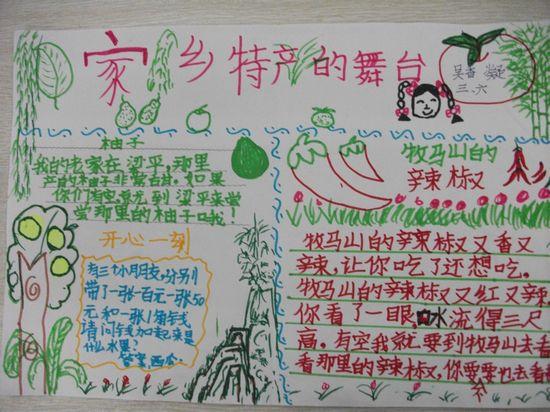 家乡特产的舞台
吴香凝
三.六
柚子
我的老家在梁平,那里
产的柚子非常古甘,如果
你们有空就到梁平来尝
尝那里的柚子吧!
开心一刻
有三个小朋友,分别
带了一张一百元一张50
元和一张1角钱
请问钱加起来是
什么水果?
答案:西瓜
牧马山的
辣椒
牧马山的辣椒又香又
辣,让你吃了还想吃。
牧马山的辣椒又红又辣
你看了一眼,口水流得三尺
高。有空我就要到牧马山去看
看那里的辣椒,你要不要也去看